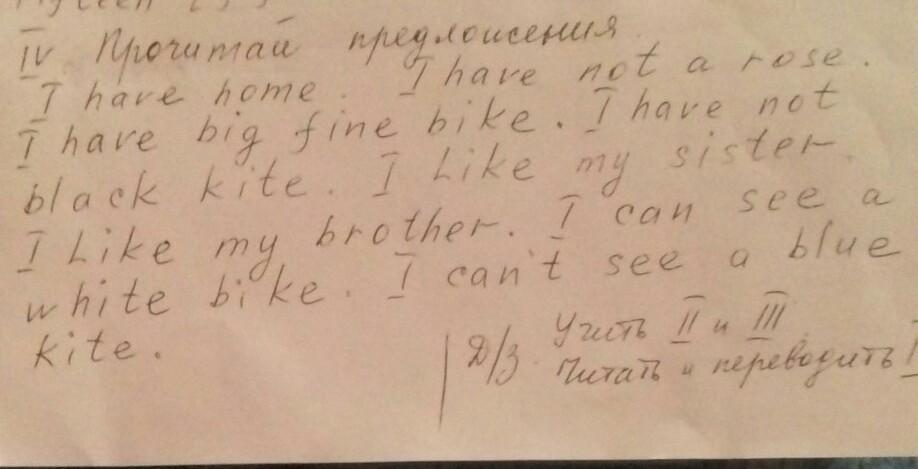 IV Прочитай предложения.
I have home. I have not a rose.
I have big fine bike. I have not
black kite. I Like my sister.
I Like my brother. I can see a
white bike. I can't see a blue
kite.
Д/З. Учить II и III
Читать и переводить